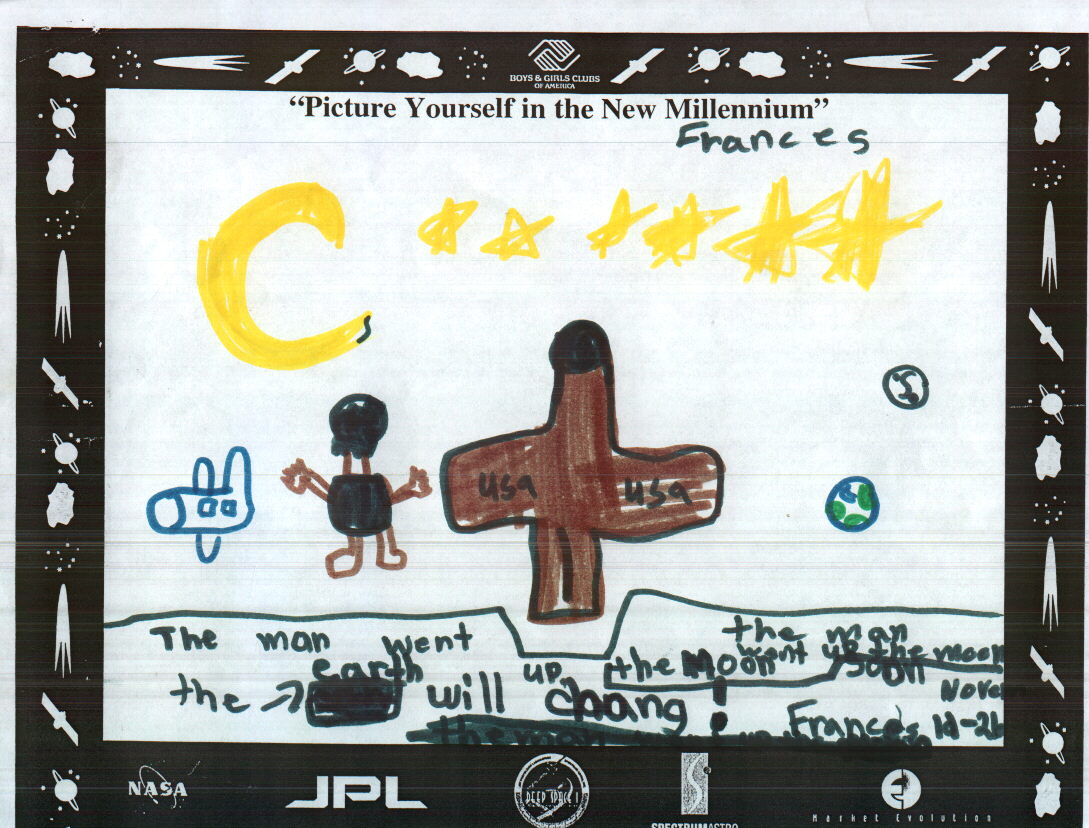 BOYS & GIRLS CLUBS
OF AMERICA
“Picture Yourself in the New Millennium”
Frances
usa usa
The man went the man
went up the moon
earth up the Moon soon
the will chang! Nove
Frances 12-2
the man
NASA JPL DEEP SPACE 1 SPECTRUMASTRO Market Evolution